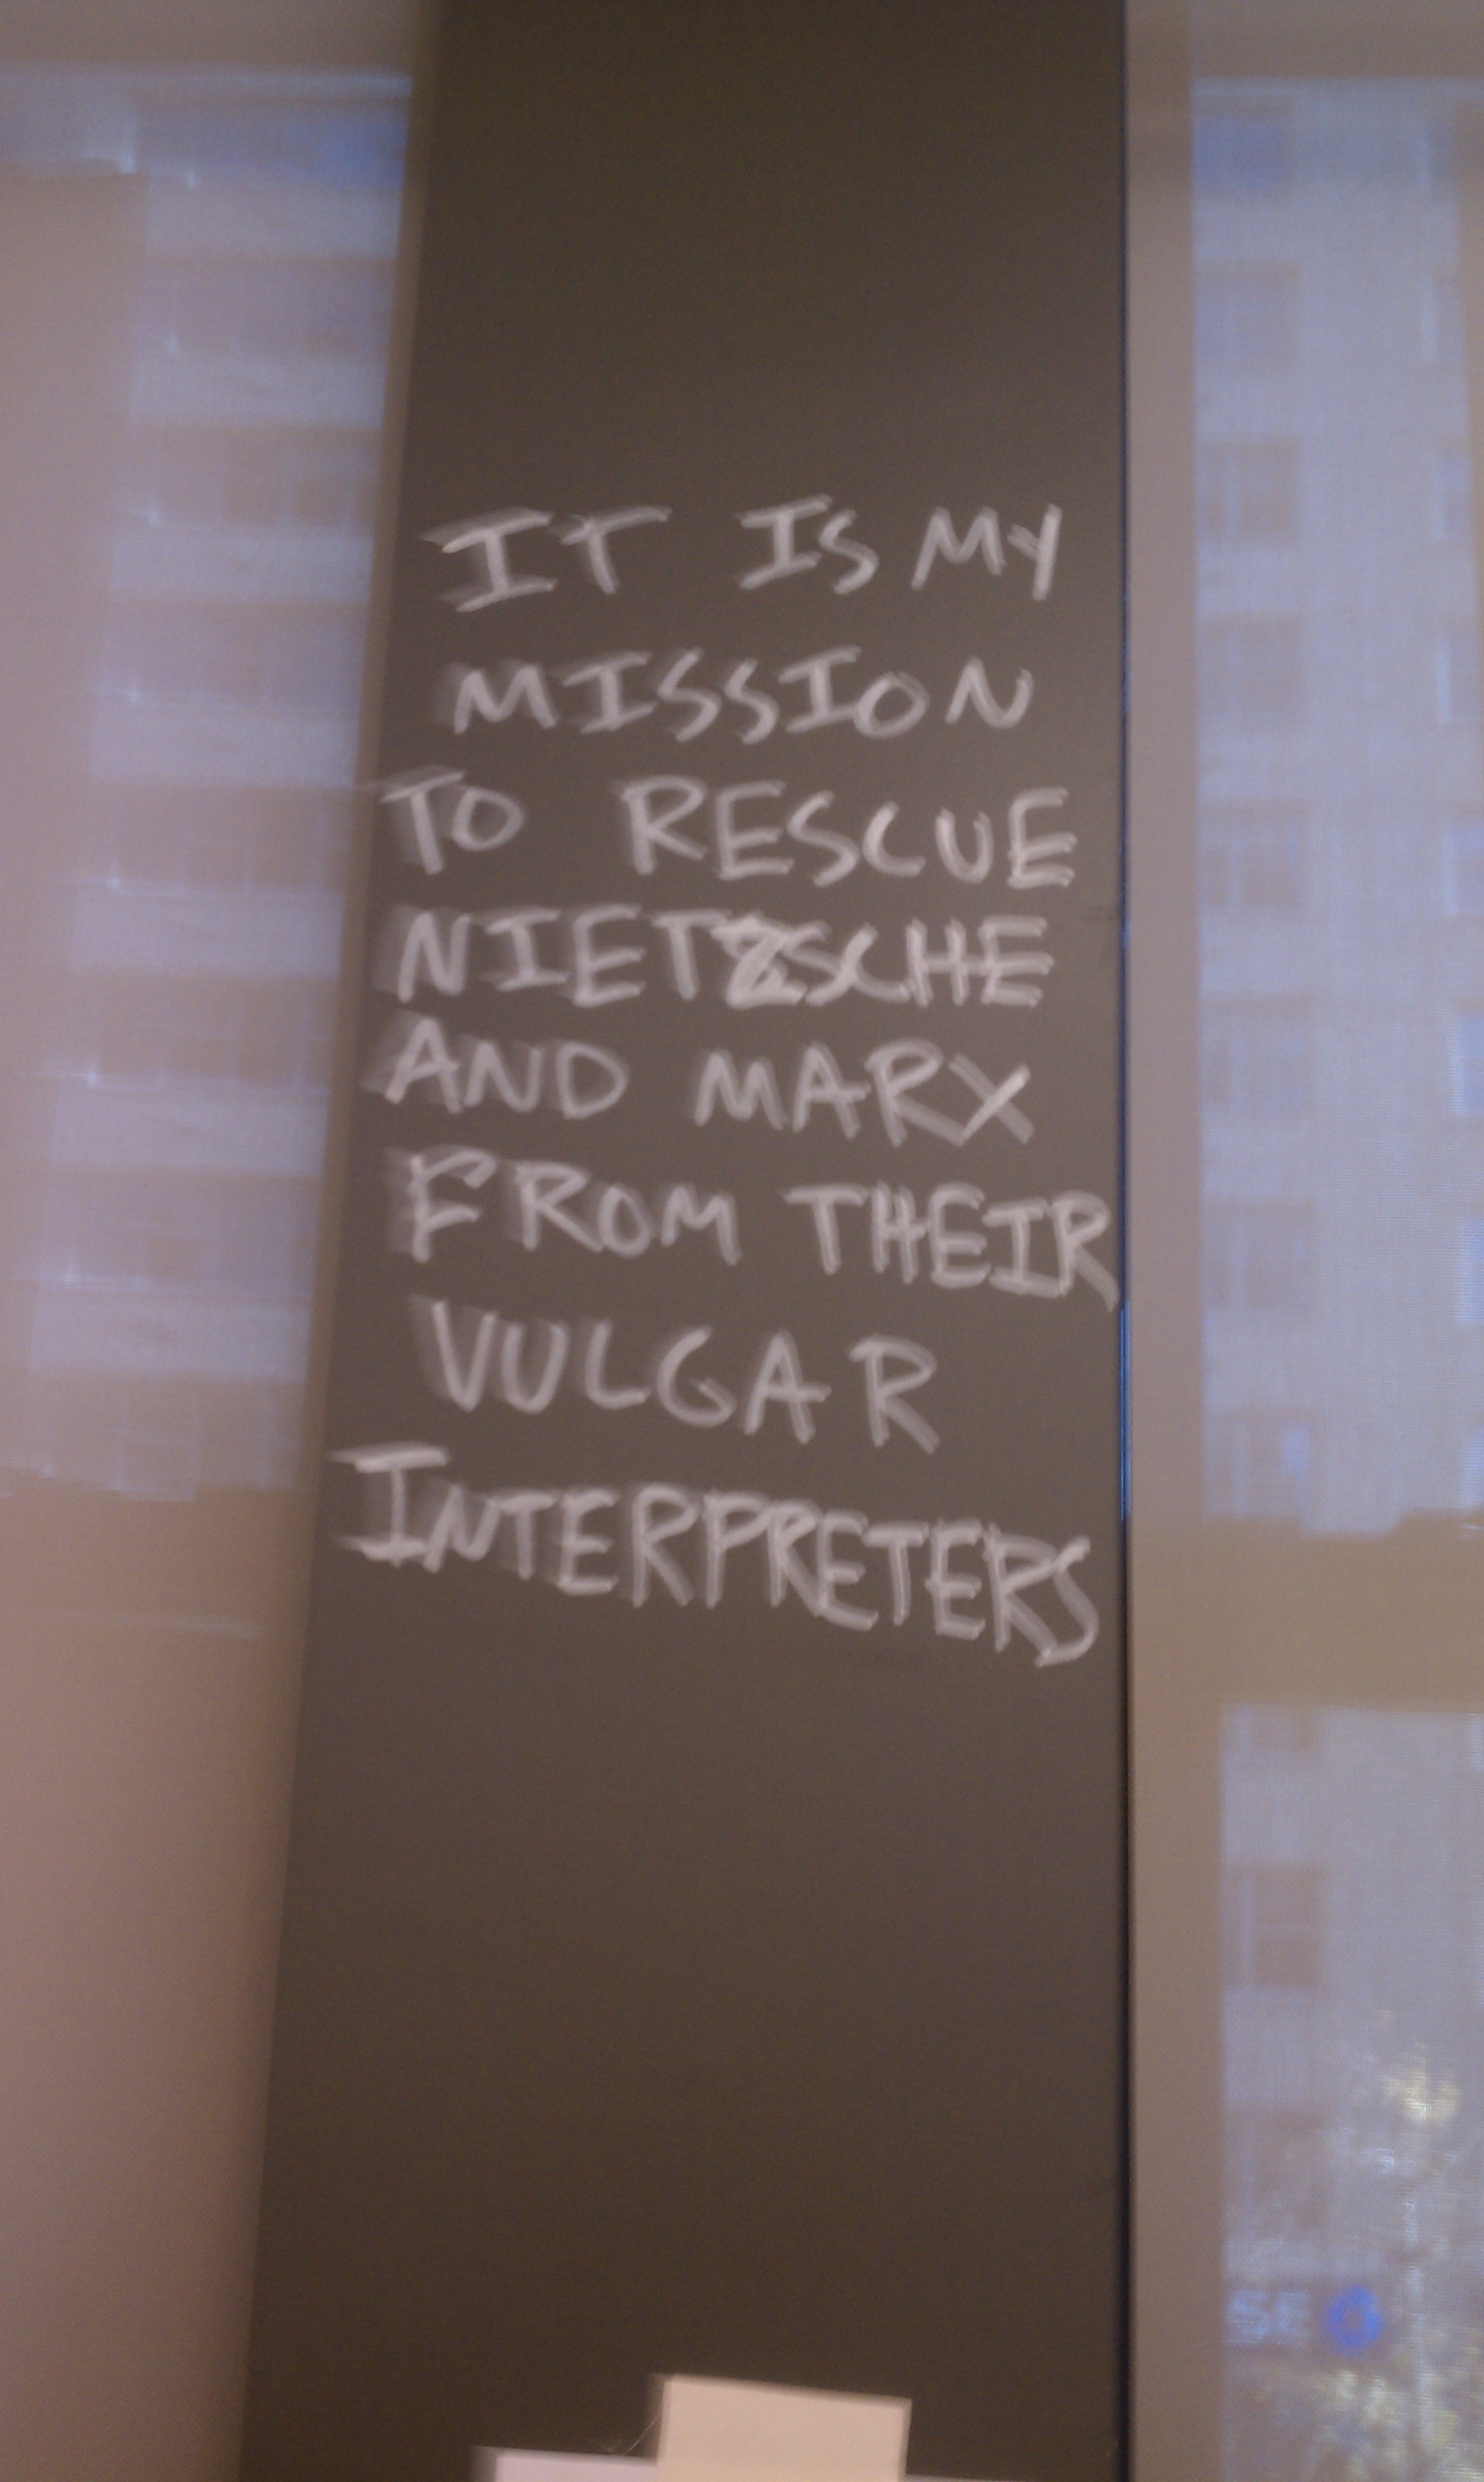 IT IS MY
MISSION
TO RESCUE
NIETZSCHE
AND MARX
FROM THEIR
VULGAR
INTERPRETERS
SE